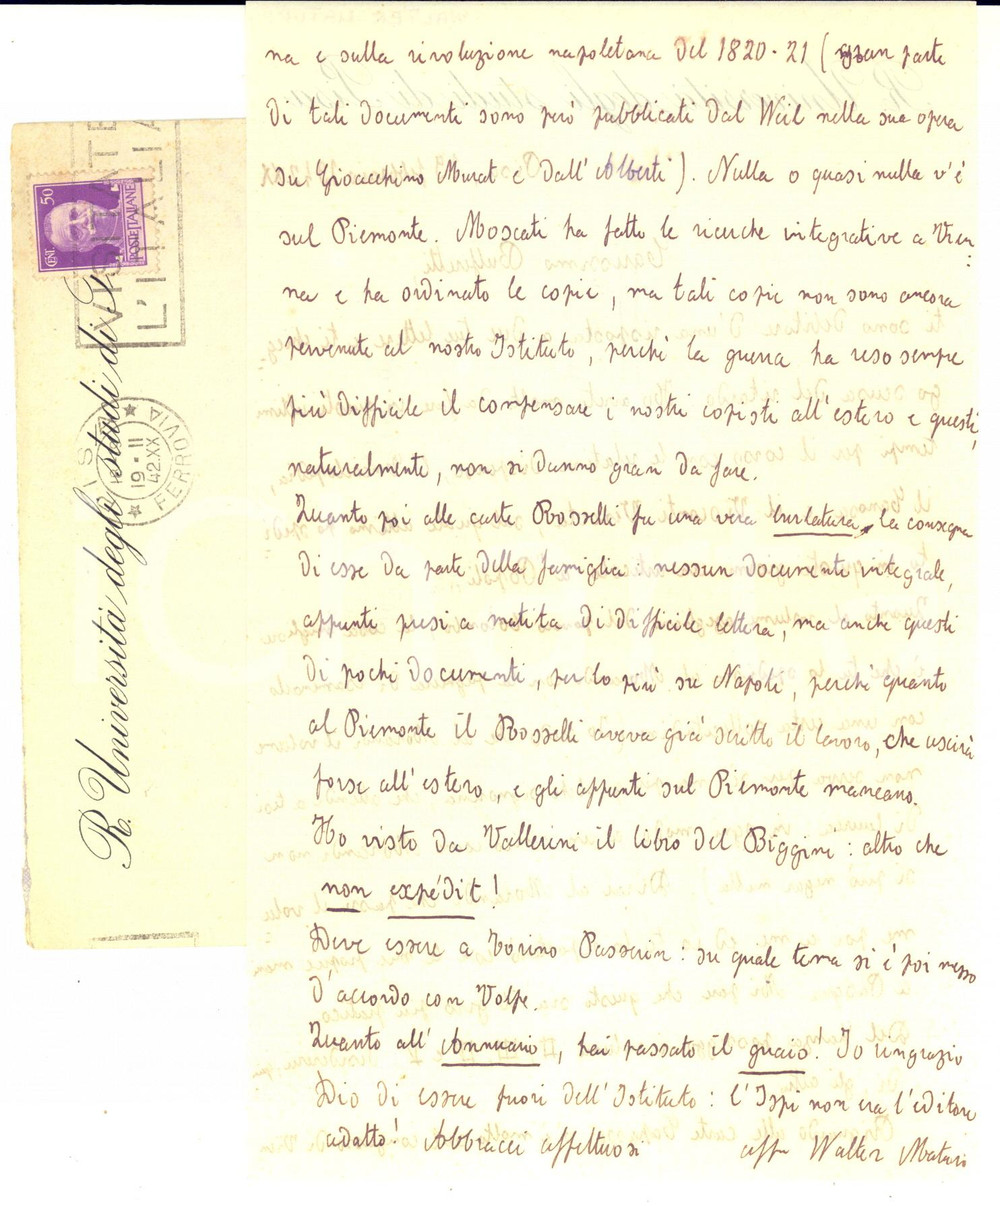 na e sulla rivoluzione napoletana del 1820-21 (gran parte
di tali documenti sono però pubblicati dal Weil nella sua opera
su Gioacchino Murat e dall'Alberti). Nulla o quasi nulla v'è
sul Piemonte. Moscati ha fatto le ricerche integrative a Vien
na e ha ordinato le copie, ma tali copie non sono ancora
pervenute al nostro Istituto, perchè la guerra ha reso sempre
più difficile il compensare i nostri copisti all'estero e questi,
naturalmente, non si danno gran da fare.
Quanto poi alle carte Rosselli fu una vera burlatura la consegna
di esse da parte della famiglia: nessun documento integrale,
appunti presi a matita di difficile lettura, ma anche questi
di pochi documenti, per lo più su Napoli, perchè quanto
al Piemonte il Rosselli aveva già scritto il lavoro, che uscirà
forse all'estero, e gli appunti sul Piemonte mancano.
Ho visto da Vallerini il libro del Biggini: altro che
non expédit!
Deve essere a Torino Passerin: su quale tema si è poi messo
d'accordo con Volpe.
Quanto all'Annuario, hai passato il guaio! Io ringrazio
Dio di essere fuori dell'Istituto: l'Ispi non era l'editore
adatto! Abbracci affettuosi aff Walter Maturi
CENT. 50
POSTE ITALIANE
VISITATE
L'ITALIA
PISA
19-11
42.XX
FERROVIA
R. Università degli studi di